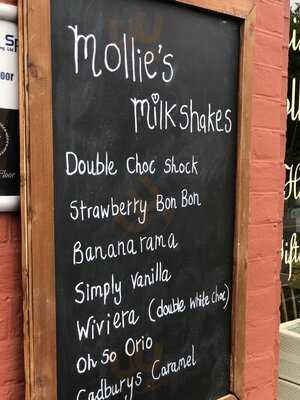 Mollie's
milkshakes
Double Choc Shock
Strawberry Bon Bon
Bananarama
Simply Vanilla
Wiviera (double white choc)
Oh So Orio
Cadburys Caramel